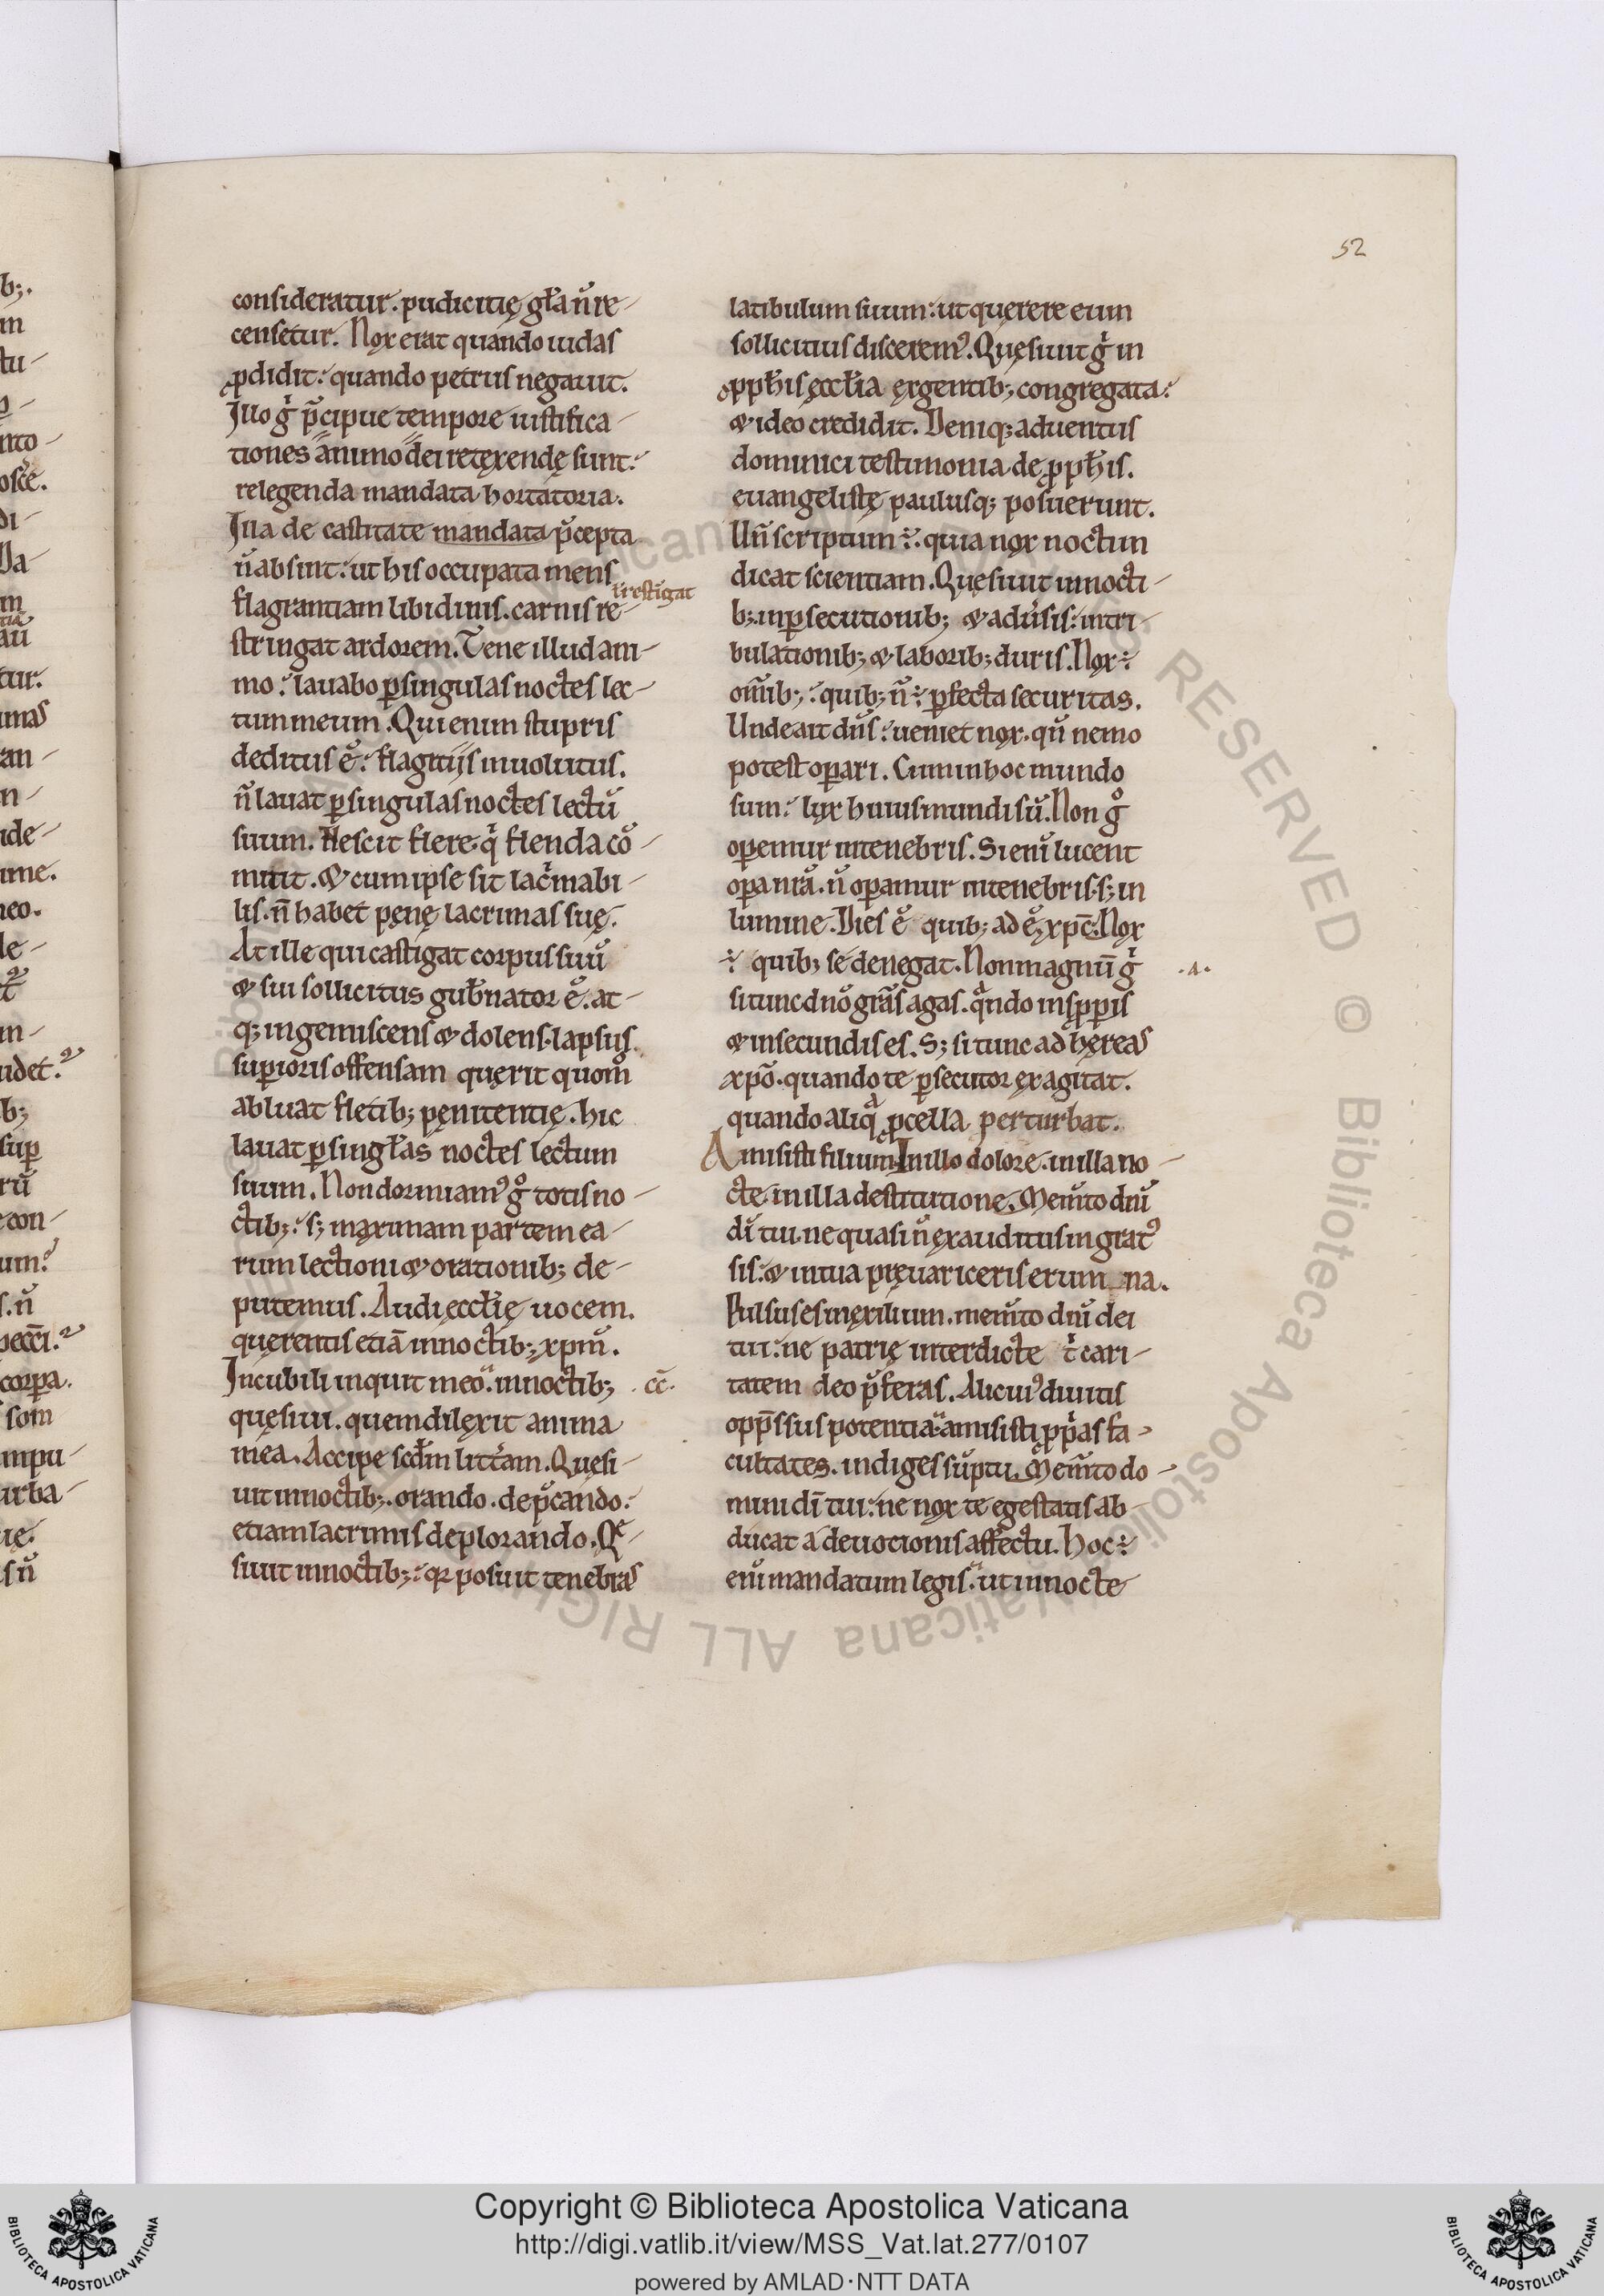 52
consideratur. pudicitię gr̃a ñ re-
censetur. Nox erat quando iudas
ꝓdidit: quando petrus negauit.
Illo gͥ p̃cipue tempore iustifica-
tiones animo dei retexendę sunt:
relegenda mandata hortatoria.
Illa de castitate mandata p̃cepta
ñ absint: ut his occupata mens
flagrantiam libidinis. carnis re-
ł restĩgat
stringat ardorem. Tene illud ani-
mo: lauabo ꝑ singulas noctes lec-
tum meum. Qui enim stupris
deditus ẽ: flagitiis inuolutus.
ñ lauat ꝑ singulas noctes lectũ
suum. Nescit flere. qͥ flenda cõ-
mittit. & cum ipse sit lacͥmabi-
lis. ñ habet penę lacrimas suę.
At ille qui castigat corpus suũ
& sui sollicitus gub̃nator ẽ. at-
q; ingemiscens & dolens. lapsus
suꝑioris offensam querit quom̊
abluat fletib; penitentię. hic
lauat ꝑ singl̃as noctes lectum
suum. Non dormiamꝰ gͦ totis no-
ctib;: s; maximam partem ea-
rum lectioni & orationib; de-
putemus. Audi ęccl̃ię uocem.
querentis etiã in noctib;. xpm̃.
In cubili inquit meo. in noctib; .cc̃.
quęsiui. quem dilexit anima
mea. Accipe scd̃m litt̃am. Quęsi-
uit in noctib;. orando. dep̃cando:
etiam lacrimis deplorando. Qͤ-
siuit in noctib;: qꝛ posuit tenebras
latibulum suum: ut quęrere eum
sollicitius disceremꝰ. Quęsiuit gͥ in
ꝓph̃is ęccl̃ia ex gentib; congregata:
& ideo credidit. Deniq; aduentus
dominici testimonia de ꝓph̃is.
euangelistę paulusq; posuerunt.
Uñ scriptum ÷. quia nox nocti in
dicat scientiam. Quęsiuit in nocti-
b;. in ꝑsecutionib; & adũsis: in tri-
bulationib; & laborib; duris. Nox ÷
om̃ib;: quib; ñ ÷ ꝑfecta securitas.
Unde ait dñs: ueniet nox. qñ nemo
potest oꝑari. Cum in hoc mundo
sum: lux huius mundi sũ. Non gͦ
oꝑemur in tenebris. Si eni᷑ lucent
oꝑa nr̃a. ñ oꝑamur in tenebris. s; in
lumine. Dies ẽ quib; adẽ xpc̃. Nox
÷ quib; se denegat. Non magnũ gͥ .A.
si tunc dño grãs agas. qͣndo in ꝓspis
& in secundis es. S; si tunc adhęreas
xpõ. quando te ꝑsecutor exagitat.
quando aliqͣ ꝓcella perturbat.
Amisisti filium. In illo dolore. in illa no-
cte. in illa destitutione. Mem̃to dñi
dĩ tui. ne quasi ñ exauditus ingratꝰ
sis: & in tua pręuariceris erumna.
Pulsus es in exilium. mem̃to dñi dei
tui: ne patrię interdictę tͥ cari-
tatem deo p̃feras. Alicuiꝰ diuitis
opp̃ssus potentia: amisisti ꝓpͥas fa-
cultates. indiges sũptu. Mem̃to do-
mini dĩ tui: ne nox te egestatis ab-
ducat a deuotionis affectu. Hoc ÷
eni᷑ mandatum legis. ut in nocte
Copyright © Biblioteca Apostolica Vaticana
http://digi.vatlib.it/view/MSS_Vat.lat.277/0107
powered by AMLAD·NTT DATA